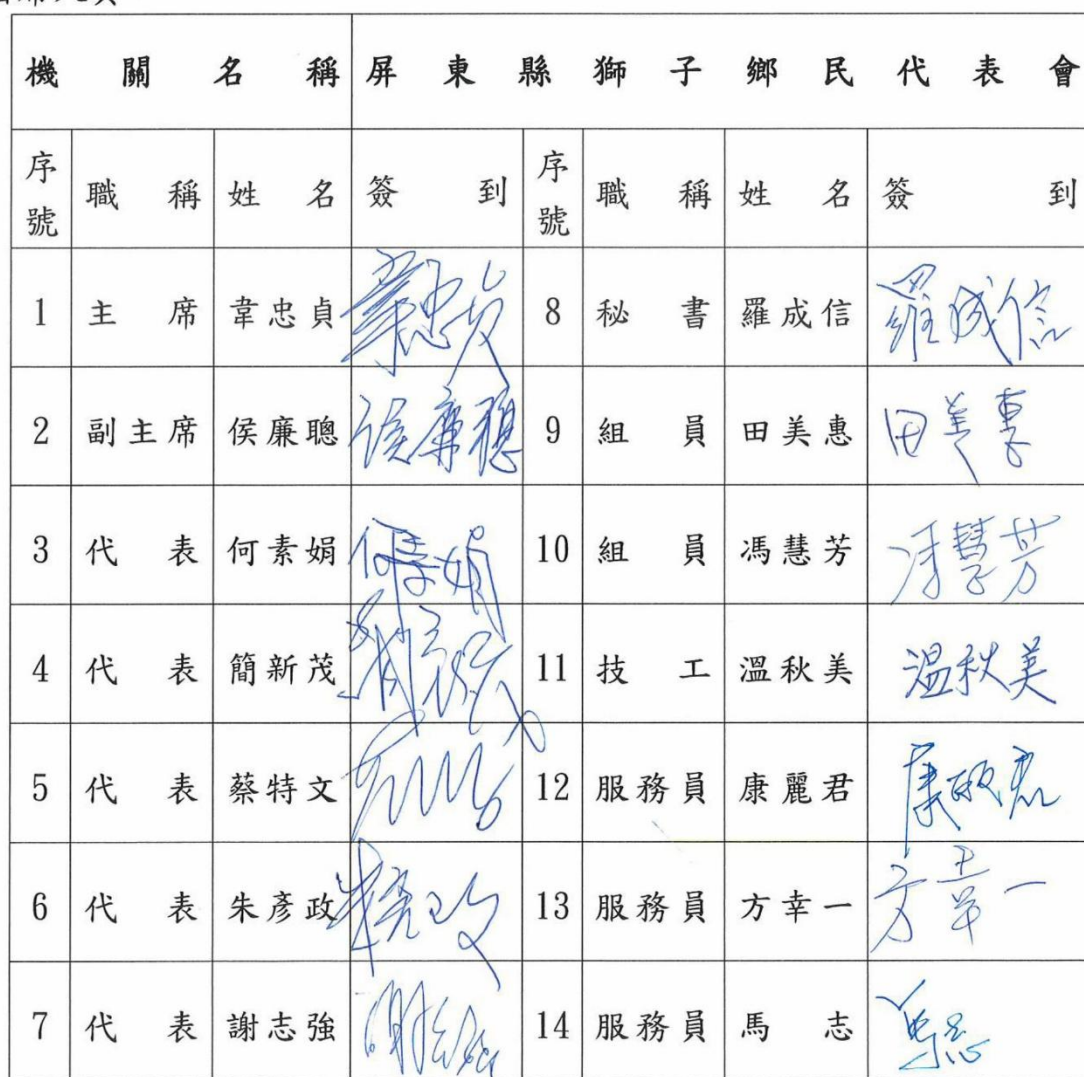 機關名稱 屏東縣獅子鄉民代表會
序號 職稱 姓名 簽到 序號 職稱 姓名 簽到
1 主席 韋忠貞 韋忠貞 8 秘書 羅成信 羅成信
2 副主席 侯廉聰 侯廉聰 9 組員 田美惠 田美惠
3 代表 何素娟 何素娟 10 組員 馮慧芳 馮慧芳
4 代表 簡新茂 11 技工 溫秋美 溫秋美
5 代表 蔡特文 12 服務員 康麗君 康麗君
6 代表 朱彥政 朱彥政 13 服務員 方幸一 方幸一
7 代表 謝志強 謝志強 14 服務員 馬志 馬志